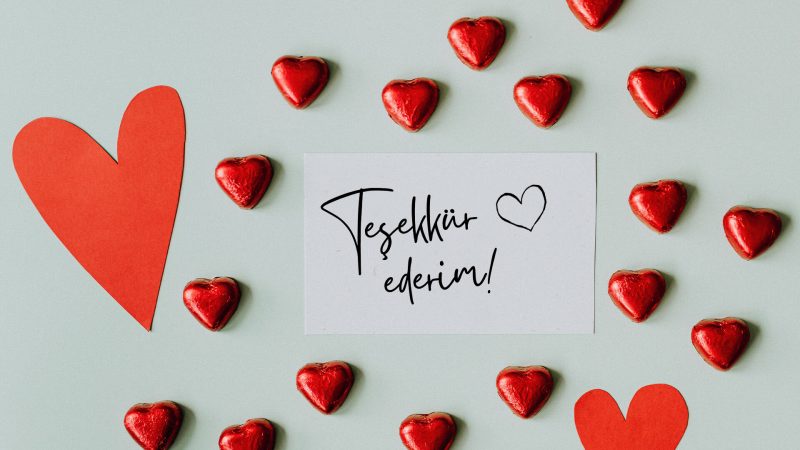 Teşekkür
ederim!